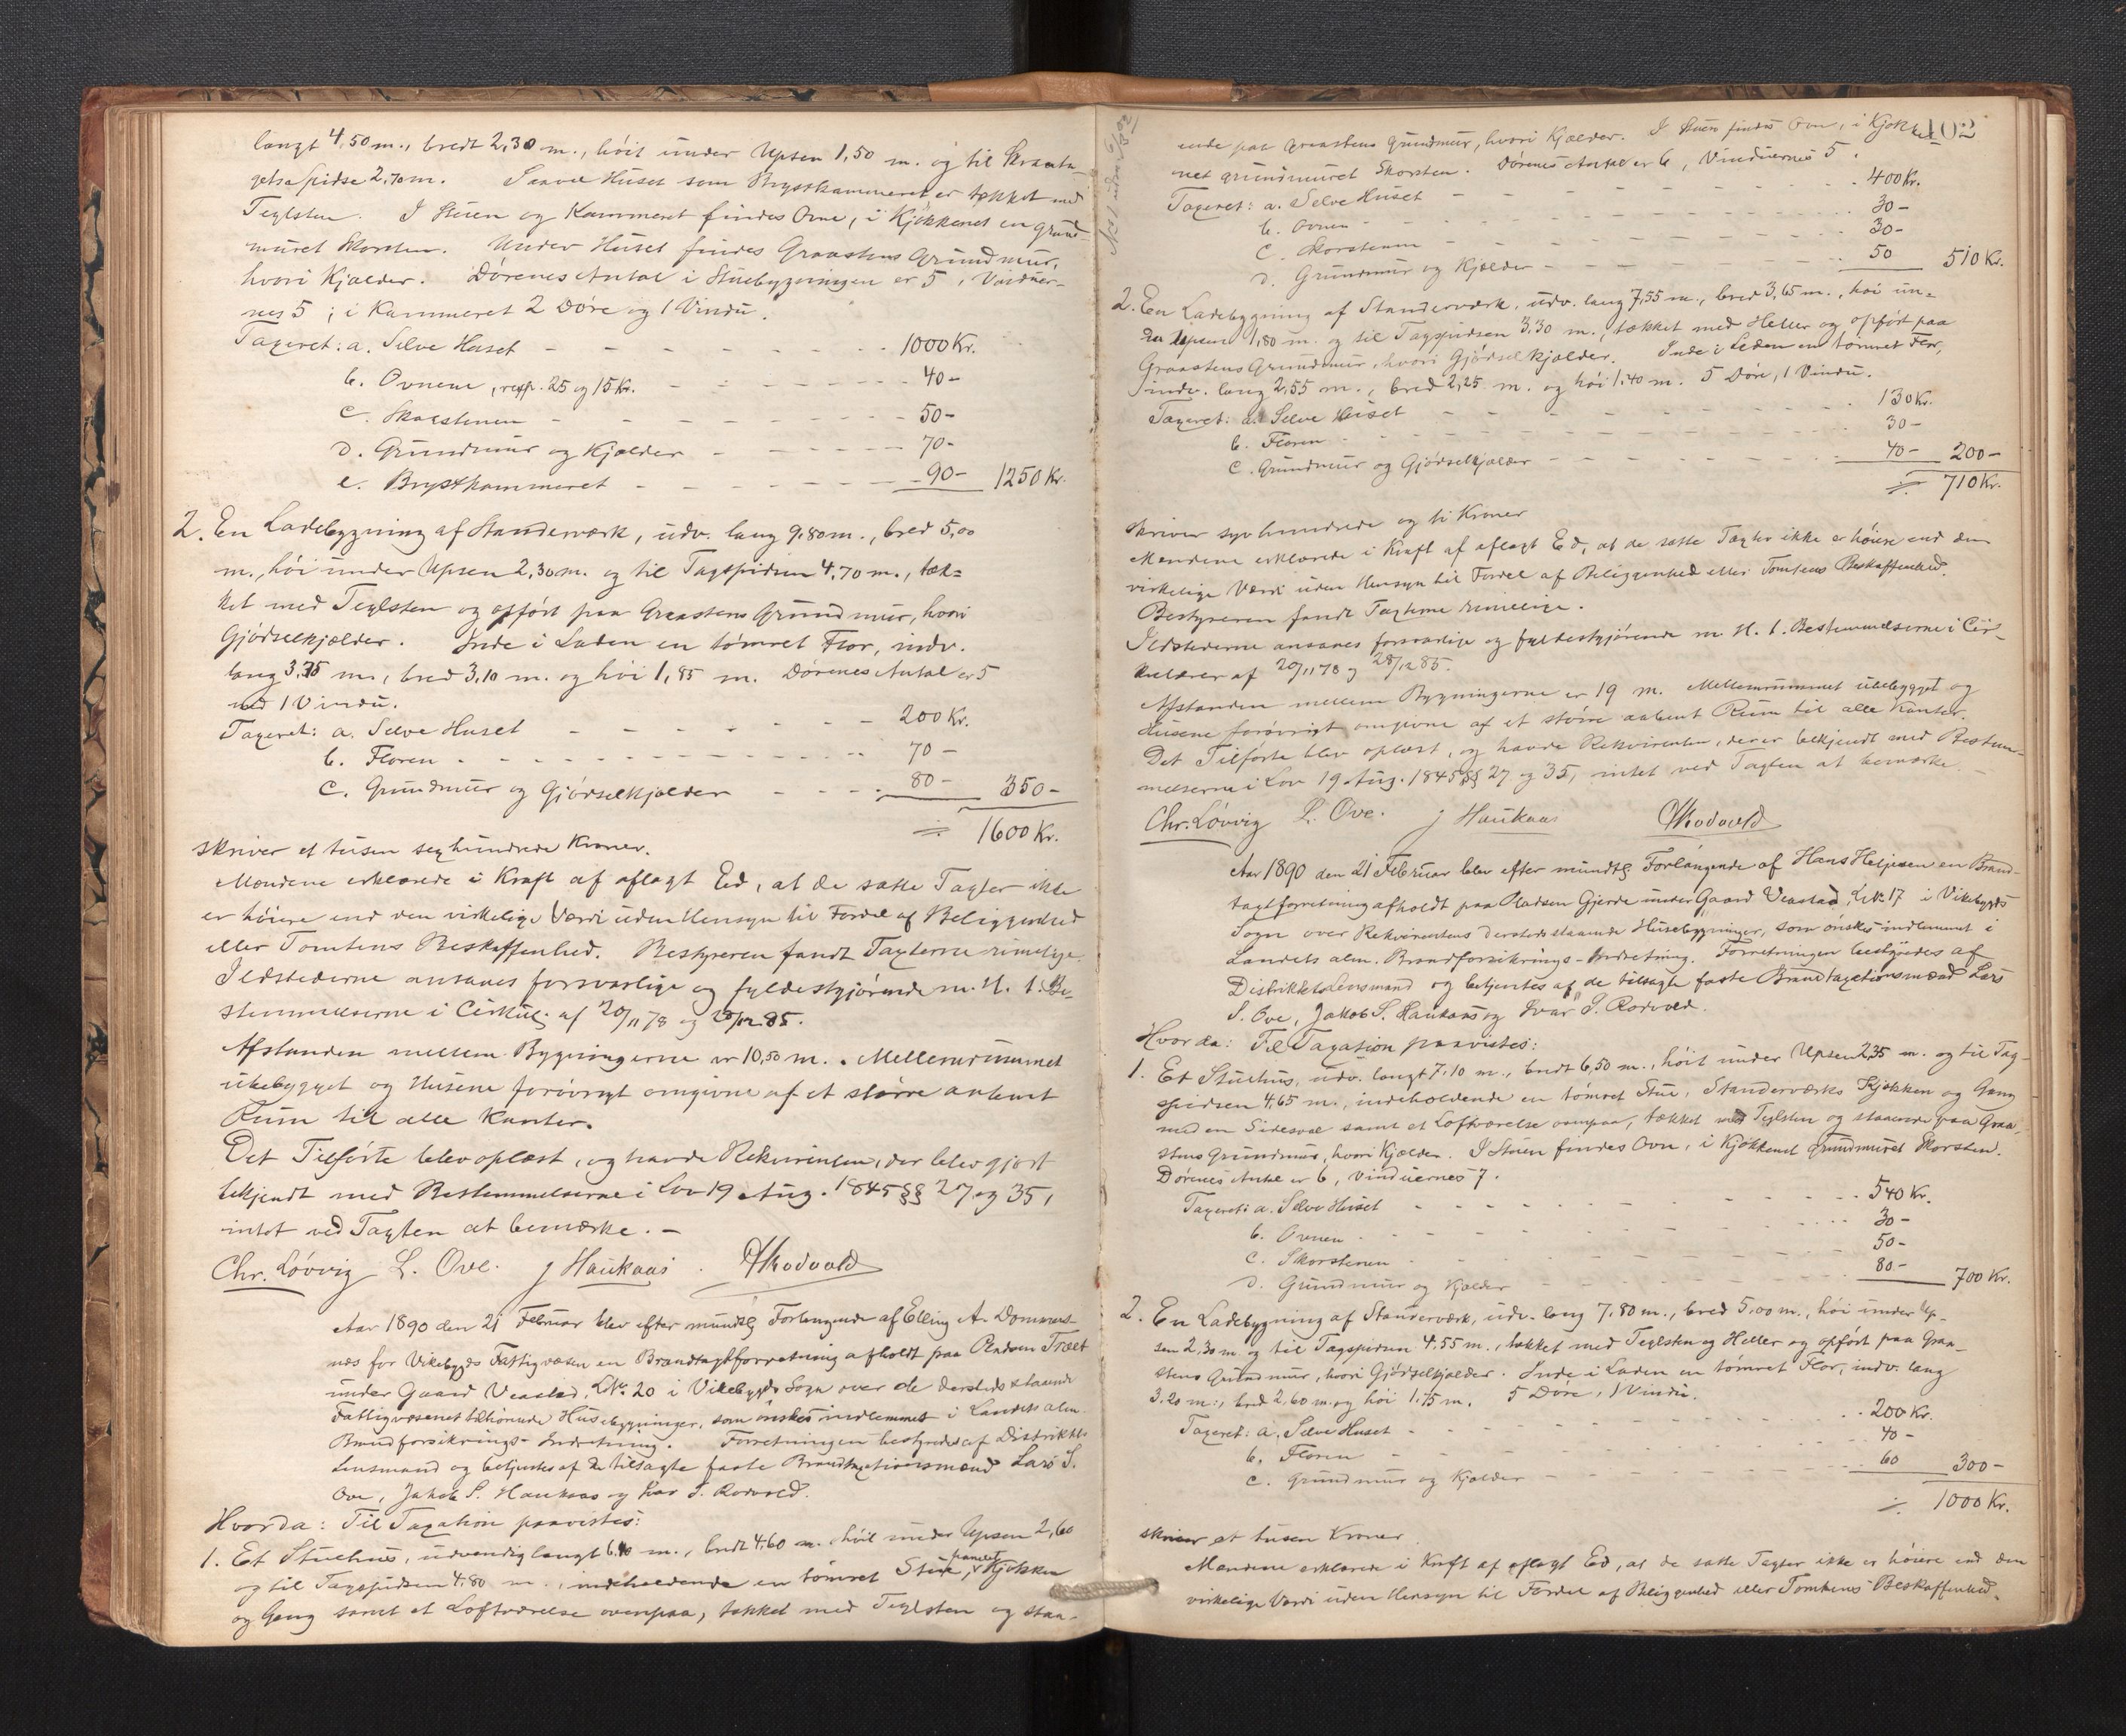 langt 4,50 m., bredt 2,30 m., höit under Upsen 1,50 m. og til Skraata-
gets Spidse 2,70 m. Saavel Huset som Brystkammeret er tækket med
Teglsten. I Stuen og Kammeret findes Ovne, i Kjökkenet en grund-
muret Skorsten. Under Huset findes Graastens Grundmur,
hvori Kjælder. Dörenes Antal i Stuebygningen er 5, Vinduer-
nes 5; i Kammeret 2 Döre og 1 Vindu.
Taxeret: a. Selve Huset - - - - - - - - 1000 Kr.
b. Ovnene, resp. 25 og 15 Kr. - - - - - - 40 -
c. Skorstenen - - - - - - - 50 -
d. Grundmur og Kjælder - - - - - 70 -
e. Brystkammeret - - - - - - 90 - 1250 Kr.
2. En Ladebygning af Standerværk, udv. lang 9,80 m., bred 5,00
m., höi under Upsen 2,30 m. og til Tagspidsen 4,70 m., tæk-
ket med Teglsten og opfört paa Graastens Grundmur, hvori
Gjödselkjælder. Inde i Laden en tömret Flor, indv.
lang 3,75 m., bred 3,10 m. og höi 1,85 m. Dörenes Antal er 5
med 1 Vindu.
Taxeret: a. Selve Huset - - - - - - 200 Kr.
b. Floren - - - - - - - - 70 -
c. Grundmur og Gjödselkjælder - - - - 80 - 350 -
÷ 1600 Kr.
skriver et tusen sexhundrede Kroner.
Mændene erklærede i Kraft af aflagt Ed, at de satte Taxter ikke
er höiere end den virkelige Værdi uden Hensyn til Fordel af Beliggenhed
eller Tomtens Beskaffenhed. Bestyreren fandt Taxterne rimelige.
Ildstederne ansaaes forsvarlige og fyldestgjörende m. H. t. Be-
stemmelserne i Cirkul. af 20/11 78 og 28/12 85.
Afstanden mellem Bygningerne er 10,50 m. Mellemrummet
ubebygget og Husene forövrigt omgivne af et större aabent
Rum til alle Kanter.
Det Tilförte blev oplæst, og havde Rekvirenten, der blev gjort
bekjendt med Bestemmelserne i Lov 19 Aug. 1845 §§ 27 og 35,
intet ved Taxten at bemærke. -
Chr. Lövvig L. Ove. J Haukaas. Rodvold
Aar 1890 den 21 Februar blev efter mundtlg Forlangende af Elling A. Dommers-
nes for Vikebygds Fattigvæsen en Brandtaxtforretning afholdt paa Pladsen Træet
under Gaard Veastad, LNr. 20 i Vikebygds Sogn over de dersteds staaende
Fattigvæsenet tilhörende Husebygninger, som önskes indlemmet i Landets alm.
Brandforsikrings-Indretning. Forretningen bestyredes af Distriktets
Lensmand og betjentes af de tilsagte faste Brandtaxationsmænd Lars S.
Ove, Jakob S. Haukaas og Ivar S. Rodvold.
Hvorda: Til Taxation paavistes:
1. Et Stuehus, udvendig langt 6,40 m., bredt 4,60 m. höit under Upsen 2,60
og til Tagspidsen 4,80 m., indeholdende en tömret Stue, panelet Kjökken
og Gang samt et Loftværelse ovenpaa, tækket med Teglsten og staa-
102
ende paa Graastens Grundmur, hvori Kjælder. I Stuen findes Ovn, i Kjökke-
net grundmuret Skorsten. Dörenes Antal er 6, Vinduernes 5.
Taxeret: a. Selve Huset - - - - - - - 400 Kr.
b. Ovnen - - - - - - - - 30 -
c. Skorstenen - - - - - - - 30 -
d. Grundmur og Kjælder - - - - - - 50 510 Kr.
2. En Ladebygning af Standerværk, udv. lang 7,55 m., bred 3,65 m., höi un-
der Upsen 1,80 m. og til Tagspidsen 3,30 m., tækket med Heller og opfört paa
Graastens Grundmur, hvori Gjödselkjælder. Inde i Laden en tömret Flor,
indv. lang 2,55 m., bred 2,25 m. og höi 1,40 m. 5 Döre, 1 Vindu.
Taxeret: a. Selve Huset - - - - - - - 130 Kr.
b. Floren - - - - - - - 30 -
c. Grundmur og Gjödselkjælder - - - - - 40 - 200 -
÷ 710 Kr.
skriver syv hundrede og ti Kroner
Mændene erklærede i Kraft af aflagt Ed, at de satte Taxter ikke er höiere end den
virkelige Værdi uden Hensyn til Fordel af Beliggenhed eller Tomtens Beskaffenhed.
Bestyreren fandt Taxterne rimelige.
Ildstederne ansaaes forsvarlige og fyldestgjörende m. H. t. Bestemmelserne i Cir-
kulærer af 20/11 78 og 28/12 85.
Afstanden mellem Bygningerne er 19 m. Mellemrummet ubebygget og
Husene forövrigt omgivne af et större aabent Rum til alle Kanter.
Det Tilförte blev oplæst, og havde Rekvirenten, der er bekjendt med Bestem-
melserne i Lov 19 Aug. 1845 §§ 27 og 35, intet ved Taxten at bemærke. -
Chr. Lövvig L. Ove. J Haukaas Rodvold
Aar 1890 den 21 Februar blev efter mundtlg Forlangende af Hans Heljesen en Brand-
taxtforretning afholdt paa Pladsen Gjerde under Gaard Veastad, LNr. 17 i Vikebygds
Sogn over Rekvirentens dersteds staaende Husebygninger, som önskes indlemmet i
Landets alm. Brandforsikrings-Indretning. Forretningen bestyredes af
Distriktets Lensmand og betjentes af de tilsagte faste Brandtaxationsmænd Lars
S. Ove, Jakob S. Haukaas og Ivar S. Rodvold.
Hvorda: Til Taxation paavistes:
1. Et Stuehus, udv. langt 7,10 m., bredt 6,50 m., höit under Upsen 2,35 m. og til Tag-
spidsen 4,65 m., indeholdende en tömret Stue, Standerværks Kjökken og Gang
med en Sidesval samt et Loftværelse ovenpaa, tækket med Teglsten og staaende paa Graa-
stens Grundmur, hvori Kjælder. I Stuen findes Ovn, i Kjökkenet grundmuret Skorsten.
Dörenes Antal er 6, Vinduernes 7.
Taxeret: a. Selve Huset - - - - - - - 540 Kr.
b. Ovnen - - - - - - - 30 -
c. Skorstenen - - - - - - - 50 -
d. Grundmur og Kjælder - - - - - - 80 - 700 Kr.
2. En Ladebygning af Standerværk, udv. lang 7,80 m., bred 5,00 m., höi under Up-
sen 2,30 m. og til Tagspidsen 4,55 m., tækket med Teglsten og Heller og opfört paa Graa-
stens Grundmur, hvori Gjödselkjælder. Inde i Laden en tömret Flor, indv. lang
3,20 m., bred 2,60 m. og höi 1,75 m. 5 Döre, 1 Vindu.
Taxeret: a. Selve Huset - - - - - - - 200 Kr.
b. Floren - - - - - - - 40 -
c. Grundmur og Kjælder - - - - - - 60 300 -
÷ 1000 Kr.
skriver et tusen Kroner
Mændene erklærede i Kraft af aflagt Ed, at de satte Taxter ikke er höiere end den
virkelige Værdi uden Hensyn til Fordel af Beliggenhed eller Tomtens Beskaffenhed.